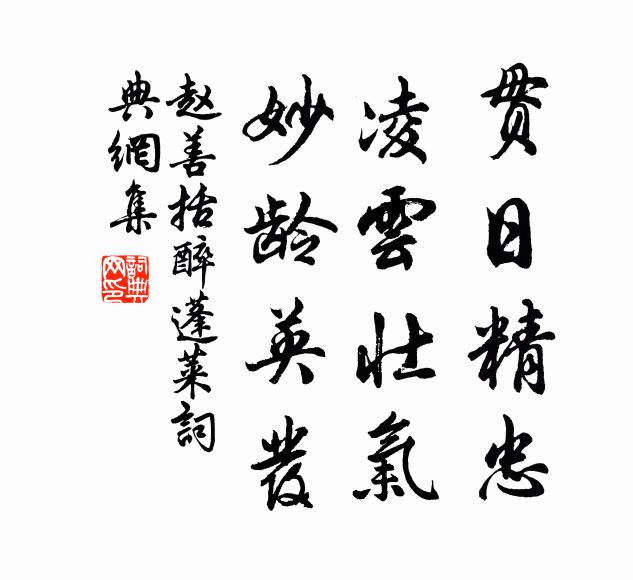 贯日精忠
凌雲壮氣
妙龄英发
赵善括醉蓬莱詞
典網集
詞典网印